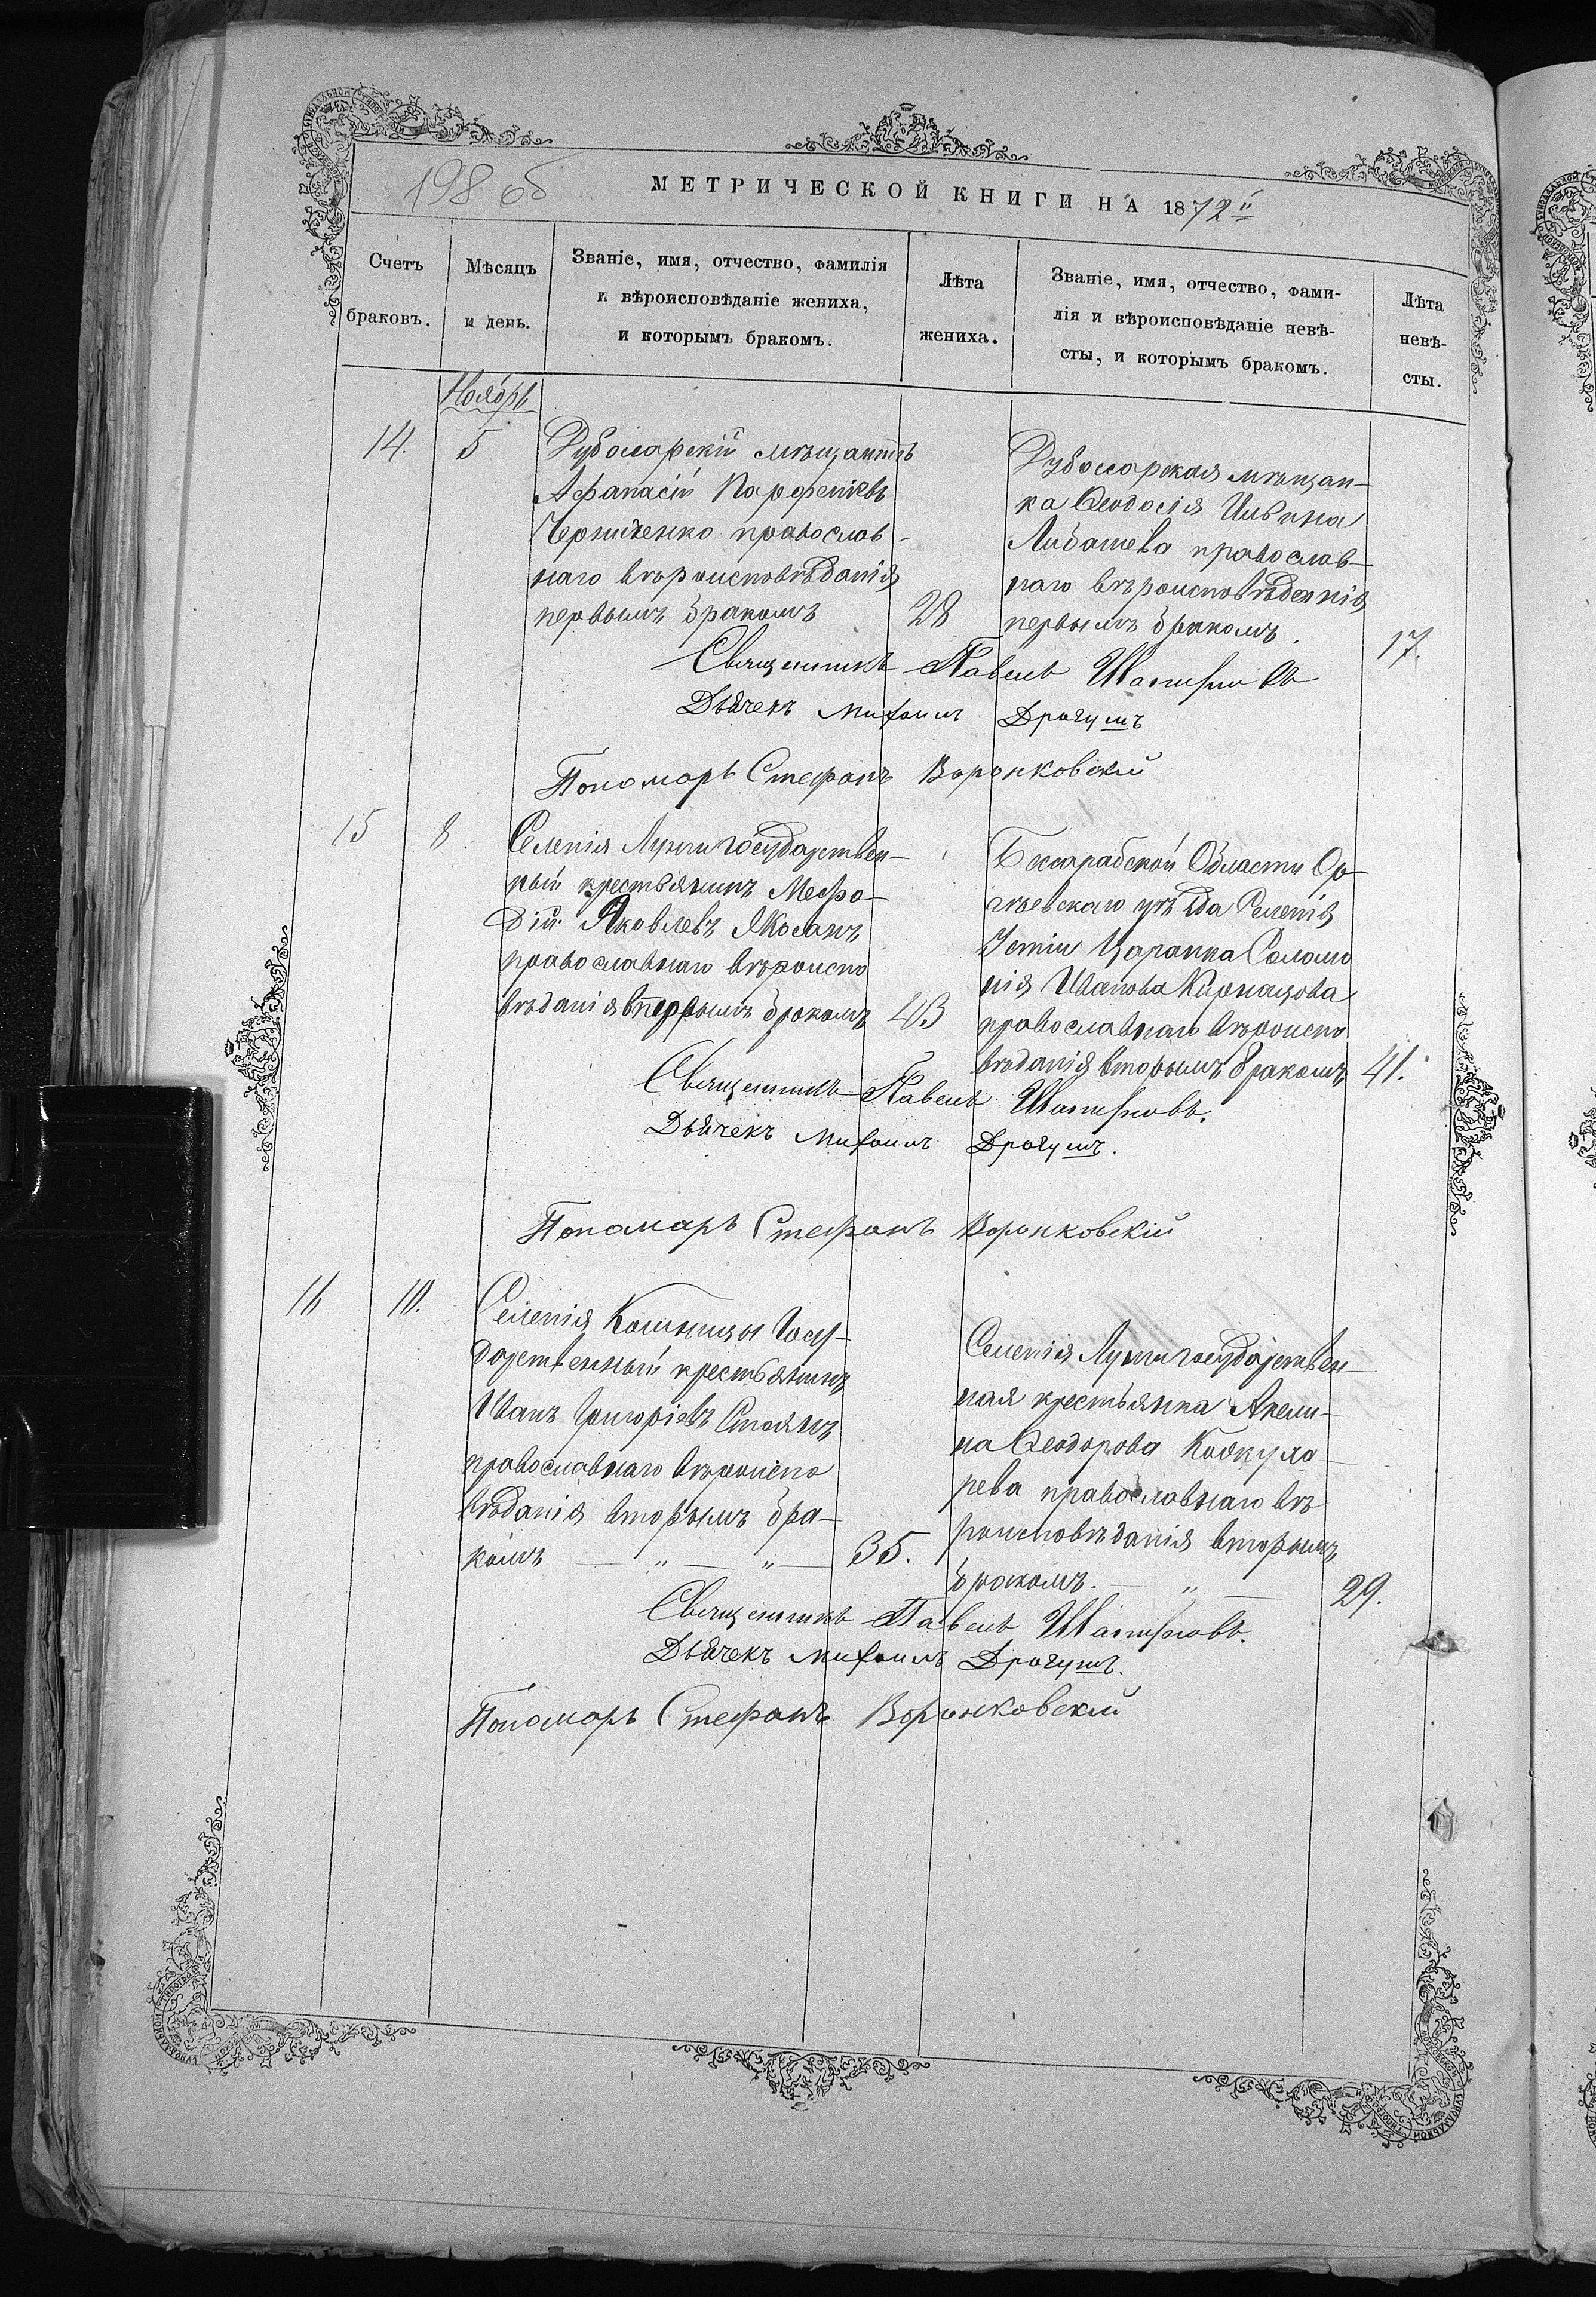 198 об
МЕТРИЧЕСКОЙ КНИГИ НА 1872й
Счетъ браковъ.
Мѣсяцъ и день.
Званіе, имя, отчество, фамилія
и вѣроисповѣданіе жениха,
и которымъ бракомъ.
Лѣта жениха.
Званіе, имя, отчество, фами-
лія и вѣроисповѣданіе невѣ-
сты, и которымъ бракомъ.
Лѣта невѣ-
сты.
Ноябрь
14. 5
Дубоссарскій мѣщанинъ
Афанасій Парфеніевъ
Черниченко православ-
наго вѣроисповѣданія
первымъ бракомъ 28
Дубоссарская мѣщан-
ка Ѳеодосія Ильина
православ-
наго вѣроисповѣденнія
первымъ бракомъ. 17.
Священникъ Павелъ
Дьячекъ Михаилъ Драгушъ
Пономарь Стефанъ Воронковскій
15 8.
Селенія Лунги государствен-
ный крестьянинъ Мефо-
дій Яковлевъ
православнаго вѣроиспо
вѣданія впервымъ бракомъ 43
Бессарабской Области Ор-
гѣевскаго уѣзда Селенія
Устіи Царанка Соломо
нія Иванова
православнаго вѣроиспо
вѣданія вторымъ бракомъ 41.
Священникъ Павелъ
Дьячекъ Михаилъ Драгушъ.
Пономарь Стефанъ Воронковскій
16 10.
Селенія Кошницы Госу-
дарственный крестьянинъ
Иванъ Григоріевъ Стоянъ
православнаго вѣроиспо
вѣданія вторымъ бра-
комъ — „ — „ — 35.
Селенія Лунги государствен-
ная крестьянка Акели-
на Ѳеодорова
рева православнаго вѣ-
роисповѣданія вторымъ
бракомъ. — „ — 29.
Священникъ Павелъ
Дьячекъ Михаилъ Драгушъ.
Пономарь Стефанъ Воронковскій